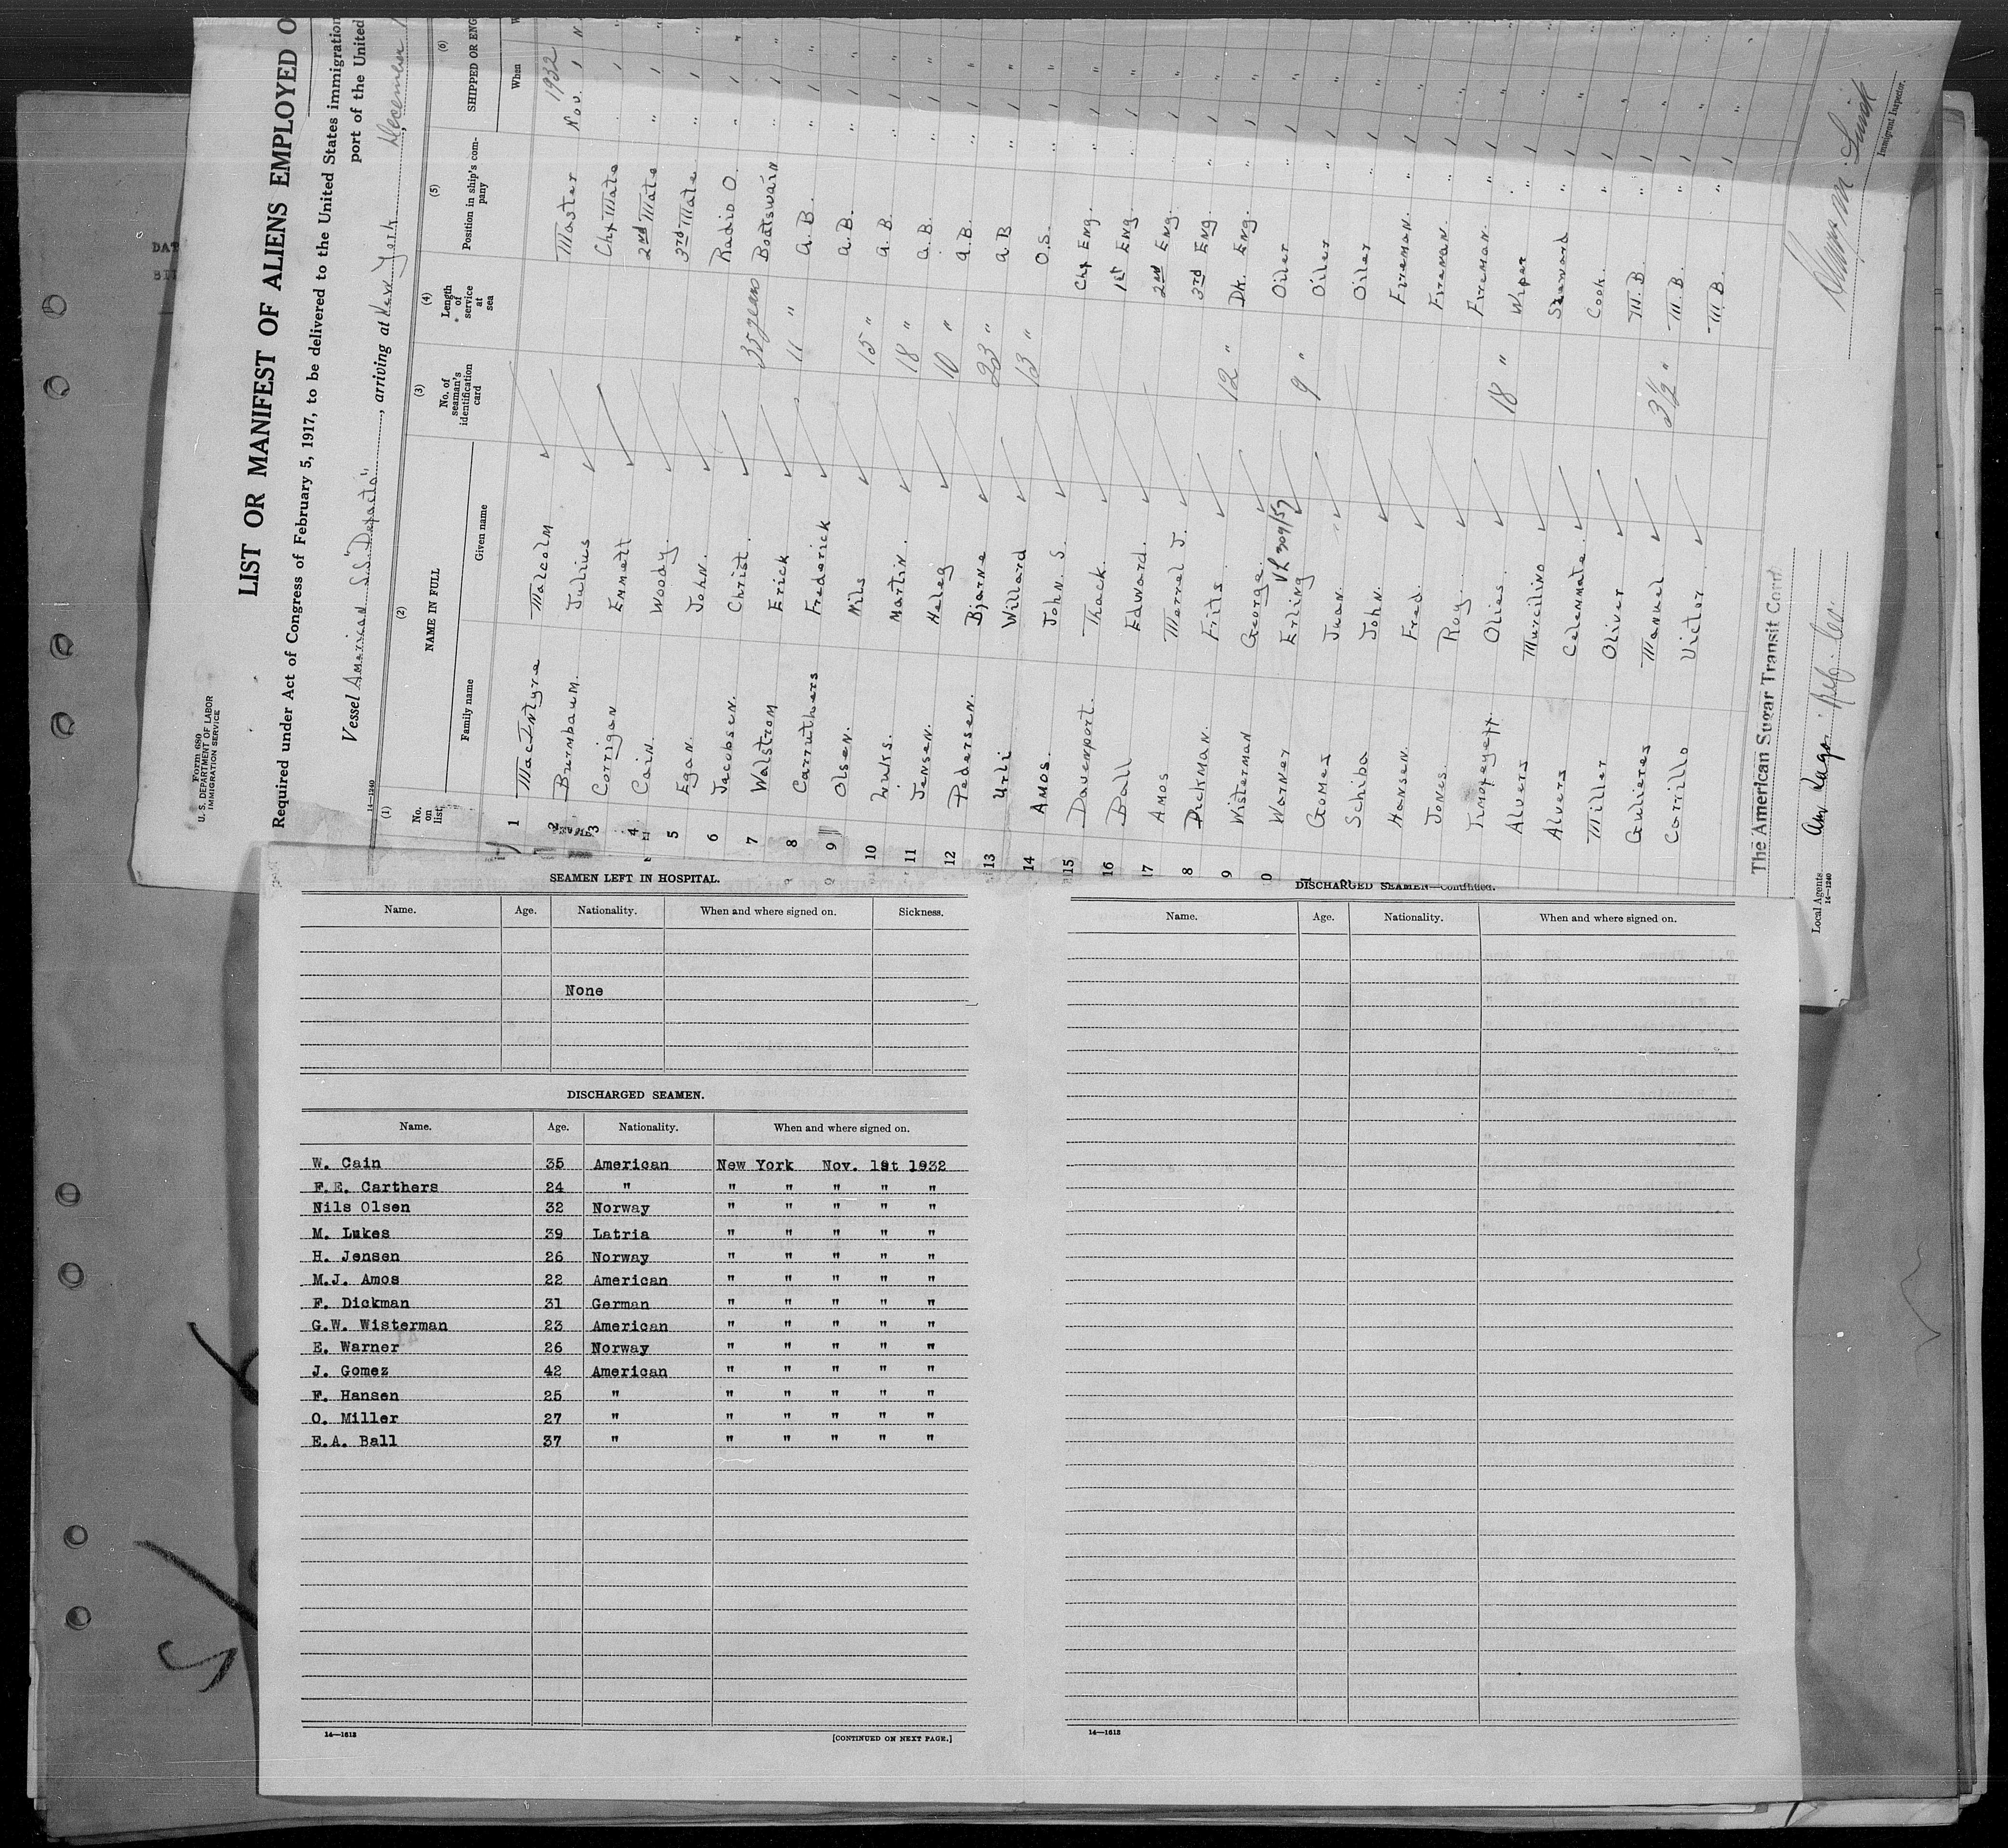 Form 689
U. S. DEPARTMENT OF LABOR
IMMIGRATION SERVICE
LIST OR MANIFEST OF ALIENS EMPLOYED O
Required under Act of Congress of February 5, 1917, to be delivered to the United States immigration
port of the United
Vessel American S.S. "Depacto", arriving at New York, December 1
14—1240
(1) (2) (3) (4) (5) (6)
No. on list NAME IN FULL No. of seaman's identification card Length of service at sea Position in ship's company SHIPPED OR ENG
Family name Given name When
1932
1 MacIntyre Malcolm Master Nov. 1
2 Burmbaum. Julius Chf Mate 1
3 Corrigan Emmett 2nd Mate " 1
4 Cain. Woody. 3rd Mate " 1
5 Egan. John. Radio O. " 1
6 Jacobsen. Christ. 35 years Boatswain " 1
7 Walstrom Erick 11 " A.B. " 1
8 Carruthers Frederick A.B. " 1
9 Olsen. Nils 15 " A.B. " 1
10 Martin. 18 " A.B. " 1
11 Jensen. Heleg 10 " A.B. " 1
12 Pedersen. Bjarne 23 " A.B " 1
13 Urli Willard 13 " O.S. "
14 Amos. John S. Chf Eng. " 1
15 Davenport. Thack. 1st Eng. " 1
16 Ball Edward. 2nd Eng. " 1
17 Amos Merrel J. 3rd Eng. " 1
8 Dickman. Frits 12 " Dk. Eng. " 1
9 Wisterman George. Oiler " 1
0 Warner Erling 9 " Oiler " 1
1 Gomes Juan. Oiler " 1
Schiba John. Fireman. " 1
Hansen. Fred. Fireman. " 1
Jones. Roy. Fireman. " 1
Olies. 18 " Wiper " 1
Alvers Murcilino Steward " 1
Alvers Celemnate. Cook. " 1
Miller Oliver M.B. " 1
Gulieres Manuel 3 1/2 " M.B. " 1
Carrillo Victor M.B. " 1
The American Sugar Transit Corp.
Local Agents
14—1240
Immigrant Inspector.
SEAMEN LEFT IN HOSPITAL.
Name. Age. Nationality. When and where signed on. Sickness.
None
DISCHARGED SEAMEN.
Name. Age. Nationality. When and where signed on.
W. Cain 35 American New York Nov. 1st 1932
F.E. Carthers 24 " " " " " "
Nils Olsen 32 Norway " " " " "
M. Lukes 39 Latria " " " " "
H. Jensen 26 Norway " " " " "
M.J. Amos 22 American " " " " "
F. Dickman 31 German " " " " "
G.W. Wisterman 23 American " " " " "
E. Warner 26 Norway " " " " "
J. Gomez 42 American " " " " "
F. Hansen 25 " " " " " "
O. Miller 27 " " " " " "
E.A. Ball 37 " " " " " "
14—1612
[CONTINUED ON NEXT PAGE.]
DISCHARGED SEAMEN—Continued.
Name. Age. Nationality. When and where signed on.
14—1612